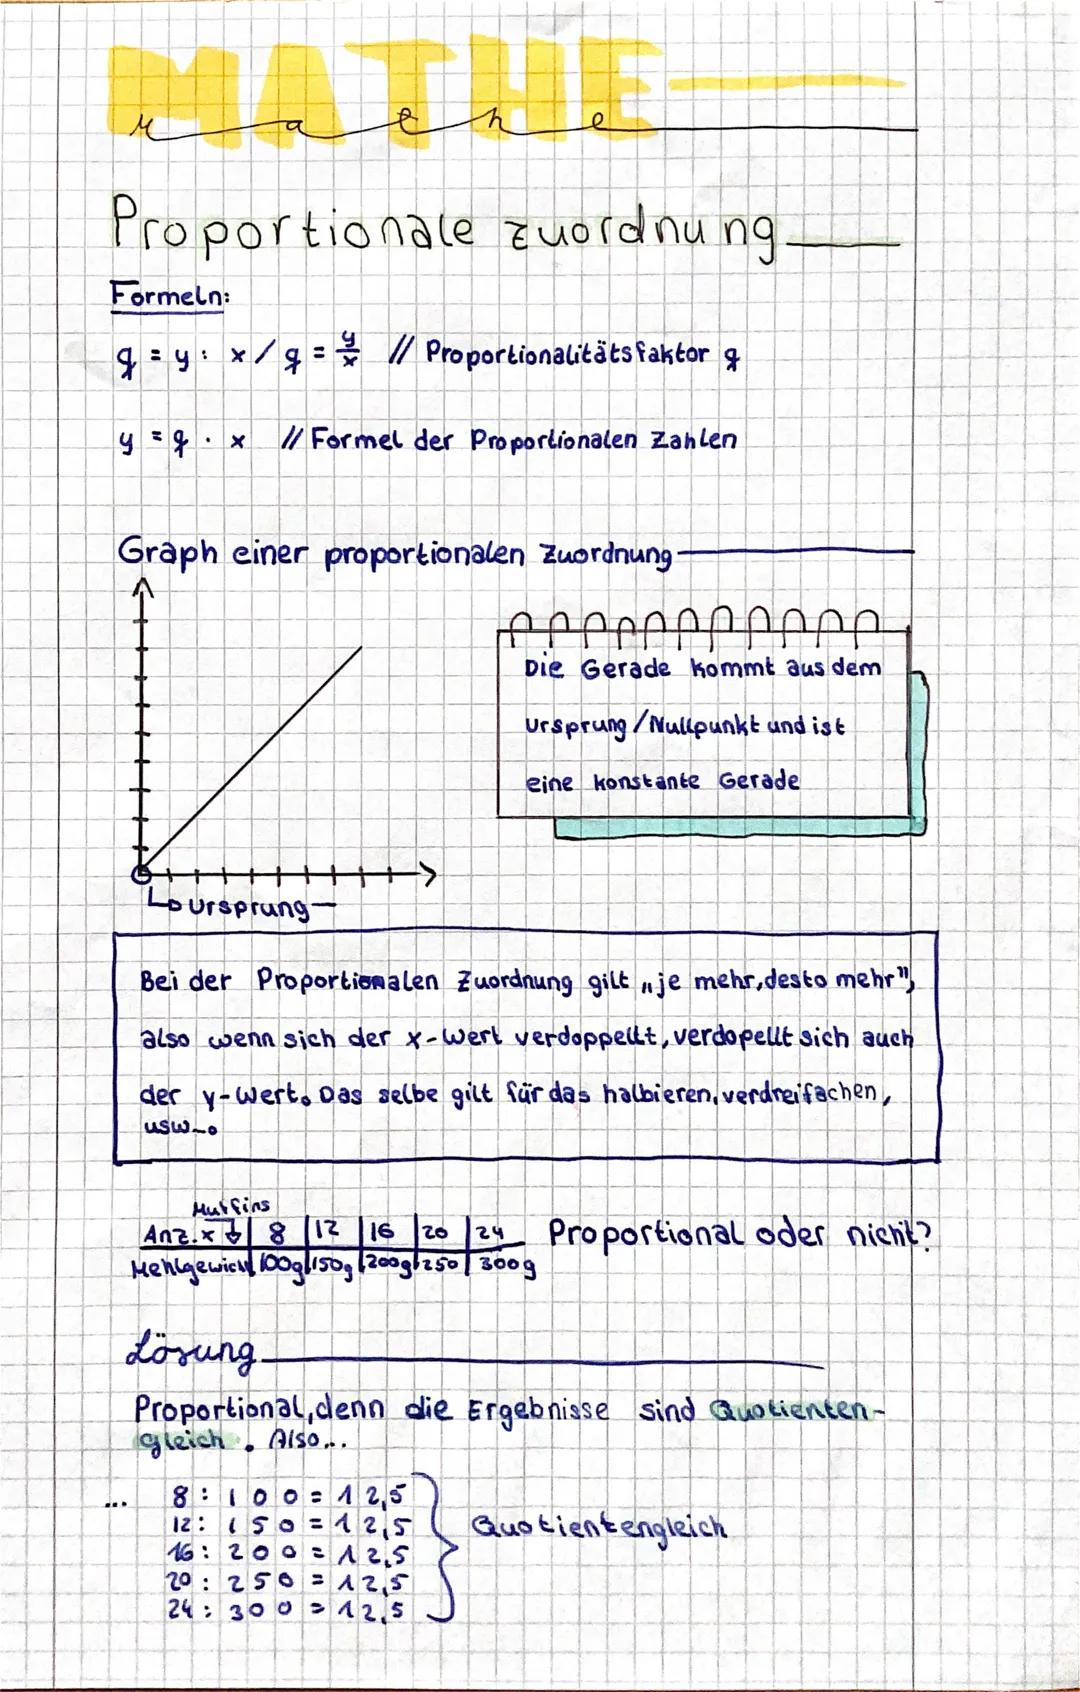 MATHE
mathe
Proportionale zuordnung
Formeln:
q = y : x / q = y/x // Proportionalitätsfaktor q
y = q · x // Formel der Proportionalen Zahlen
Graph einer proportionalen Zuordnung
Die Gerade kommt aus dem
Ursprung/Nullpunkt und ist
eine konstante Gerade
Ursprung
Bei der Proportionalen Zuordnung gilt „je mehr, desto mehr",
also wenn sich der x-Wert verdoppellt, verdopellt sich auch
der y-Wert. Das selbe gilt für das halbieren, verdreifachen,
usw...
Muffins
Anz. x | 8 | 12 | 16 | 20 | 24 Proportional oder nicht?
Mehlgewicht | 100g | 150g | 200g | 250 | 300g
Lösung
Proportional, denn die Ergebnisse sind Quotienten-
gleich. Also...
... 8 : 100 = 12,5
12 : 150 = 12,5 Quotientengleich
16 : 200 = 12,5
20 : 250 = 12,5
24 : 300 = 12,5